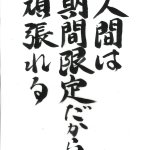 人間は
期間限定だから
頑張れる